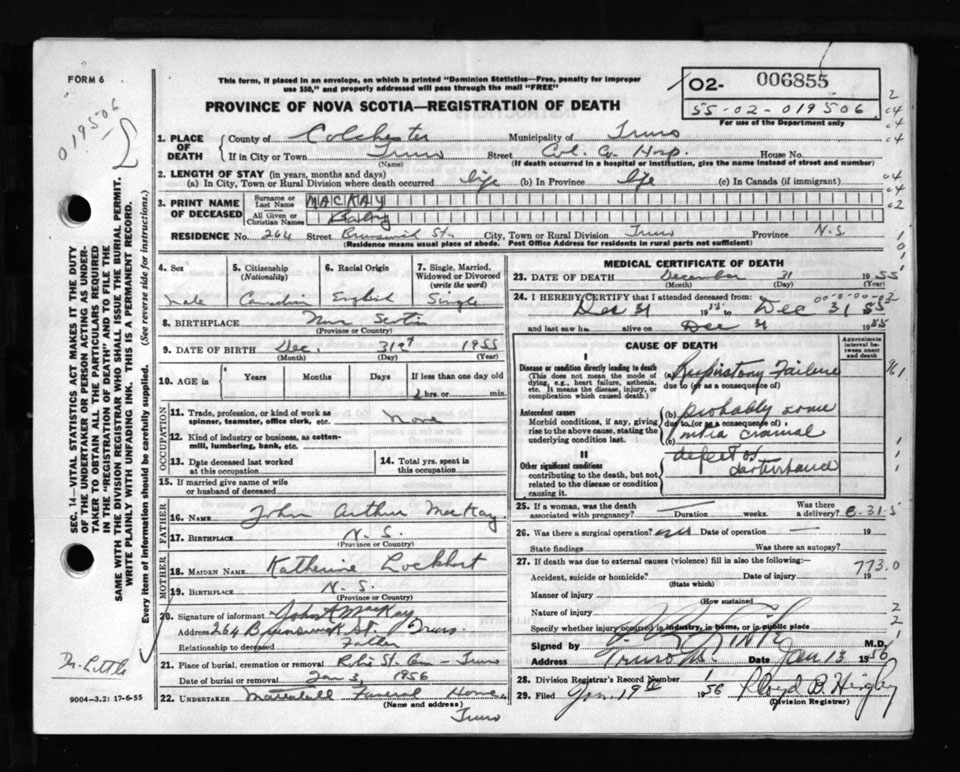 FORM 6
This form, if placed in an envelope, on which is printed "Dominion Statistics—Free, penalty for improper
use $50," and properly addressed will pass through the mail "FREE"
02- 006855
55-02-019506
For use of the Department only
PROVINCE OF NOVA SCOTIA—REGISTRATION OF DEATH
019506
1. PLACE OF DEATH County of Colchester Municipality of Truro
If in City or Town Truro Street Col. Co. Hosp. House No.
(Name) (If death occurred in a hospital or institution, give the name instead of street and number)
2. LENGTH OF STAY (in years, months and days)
(a) In City, Town or Rural Division where death occurred life (b) In Province life (c) In Canada (if immigrant)
3. PRINT NAME OF DECEASED Surname or Last Name MACKAY
All Given or Christian Names Baby
RESIDENCE No. 264 Street Brunswick St. City, Town or Rural Division Truro Province N.S.
(Residence means usual place of abode. Post Office Address for residents in rural parts not sufficient)
SEC. 14—VITAL STATISTICS ACT MAKES IT THE DUTY
OF THE UNDERTAKER OR PERSON ACTING AS UNDER-
TAKER TO OBTAIN ALL THE PARTICULARS REQUIRED
IN THE "REGISTRATION OF DEATH" AND TO FILE THE
SAME WITH THE DIVISION REGISTRAR WHO SHALL ISSUE THE BURIAL PERMIT.
WRITE PLAINLY WITH UNFADING INK. THIS IS A PERMANENT RECORD.
Every item of information should be carefully supplied. (See reverse side for instructions.)
4. Sex Male
5. Citizenship (Nationality) Canadian
6. Racial Origin English
7. Single, Married, Widowed or Divorced (write the word) Single
8. BIRTHPLACE Nova Scotia
(Province or Country)
9. DATE OF BIRTH Dec. 31st 1955
(Month) (Day) (Year)
10. AGE in Years Months Days If less than one day old
2 hrs. or min.
OCCUPATION
11. Trade, profession, or kind of work as
spinner, teamster, office clerk, etc. None
12. Kind of industry or business, as cotton-
mill, lumbering, bank, etc.
13. Date deceased last worked at this occupation
14. Total yrs. spent in this occupation
15. If married give name of wife
or husband of deceased
FATHER
16. NAME John Arthur MacKay
17. BIRTHPLACE N.S.
(Province or Country)
MOTHER
18. MAIDEN NAME Katherine Lockhart
19. BIRTHPLACE N.S.
(Province or Country)
20. Signature of informant John A MacKay
Address 264 Brunswick St. Truro.
Relationship to deceased Father
21. Place of burial, cremation or removal Robie St. Cem - Truro
Date of burial or removal Jan 3, 1956
22. UNDERTAKER Mattatall Funeral Home,
(Name and address)
Truro
Dr. Little
9004-3.2: 17-6-55
MEDICAL CERTIFICATE OF DEATH
23. DATE OF DEATH December 31 1955
(Month) (Day) (Year)
24. I HEREBY CERTIFY that I attended deceased from:
Dec 31 1955 to Dec 31 1955
and last saw h alive on Dec 31 1955
CAUSE OF DEATH
Approximate interval between onset and death
I
Disease or condition directly leading to death
(This does not mean the mode of
dying, e.g., heart failure, asthenia,
etc. It means the disease, injury, or
complication which caused death.)
(a) Respiratory Failure
due to (or as a consequence of)
Antecedent causes
Morbid conditions, if any, giving
rise to the above cause, stating the
underlying condition last.
(b) probably some
due to (or as a consequence of)
(c) intra cranial
defect or
disturbance
II
Other significant conditions
contributing to the death, but not
related to the disease or condition
causing it.
25. If a woman, was the death
associated with pregnancy? Duration weeks. Was there a delivery?
26. Was there a surgical operation? no Date of operation 19
State findings Was there an autopsy?
27. If death was due to external causes (violence) fill in also the following:—
773.0
Accident, suicide or homicide? Date of injury 19
(State which)
Manner of injury
(How sustained
Nature of injury
Specify whether injury occurred in industry, in home, or in public place
Signed by M.D.
Address Truro NS. Date Jan 13 1956
28. Division Registrar's Record Number 1
29. Filed Jan. 19th 1956 Lloyd B. Higby
(Division Registrar)